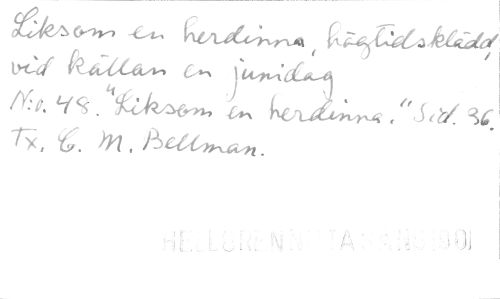 Liksom en herdinna, högtidsklädd,
vid källan en junidag
N:o. 48. "Liksom en herdinna." Sid. 36.
Tx. C. M. Bellman.